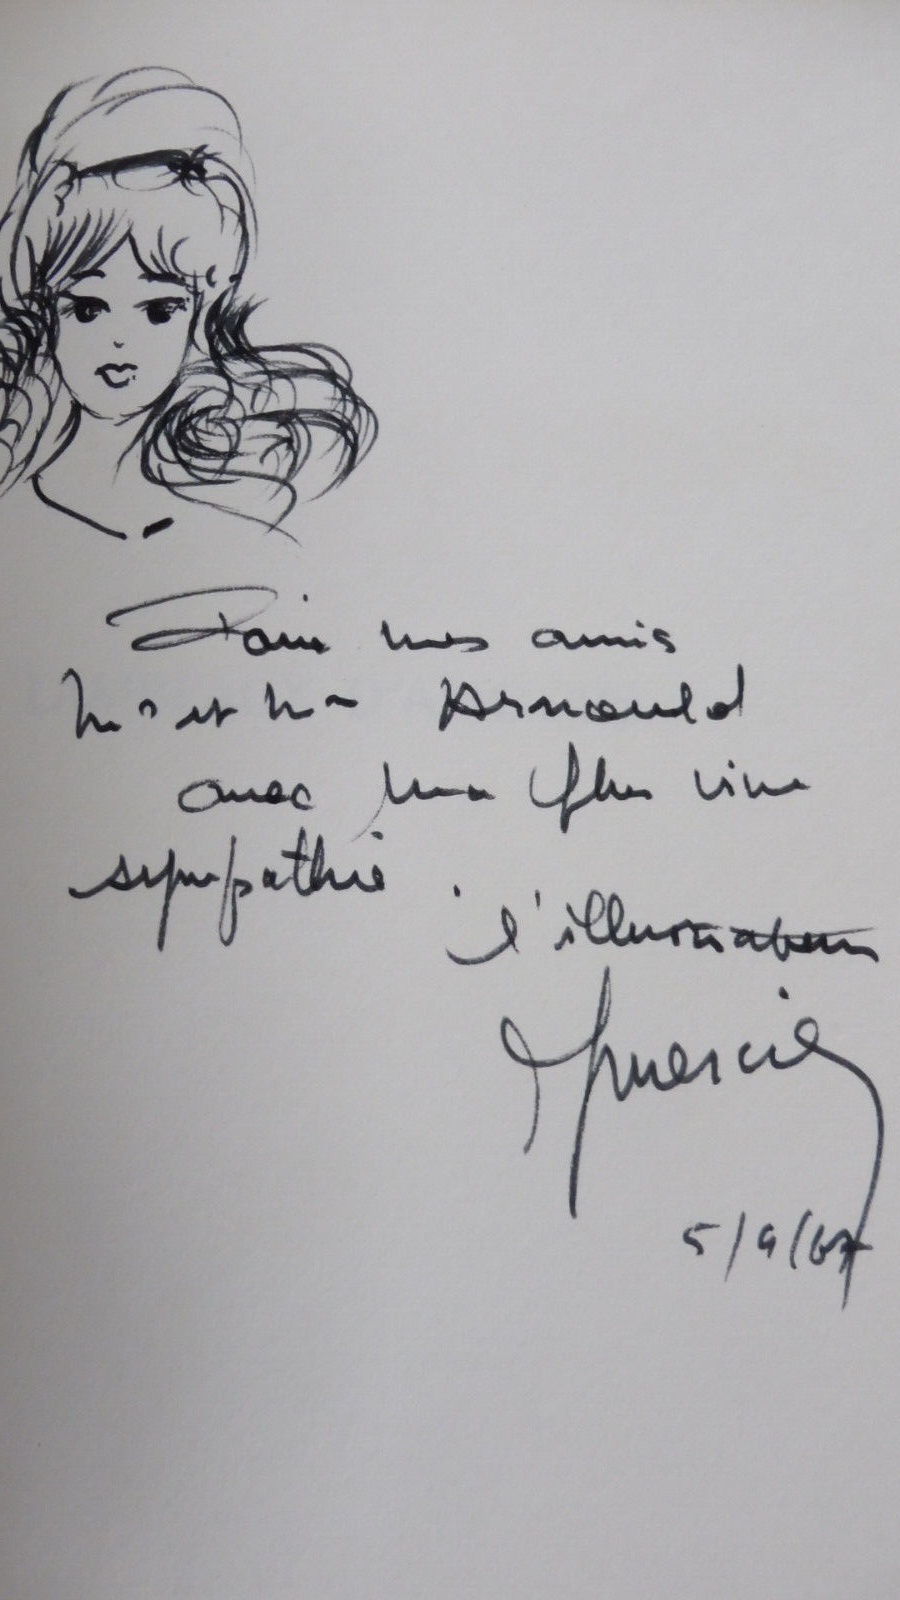 Pour mes amis
Mr et Mme Arnould
avec ma plus vive
sympathie
l'illustrateur
5/9/67